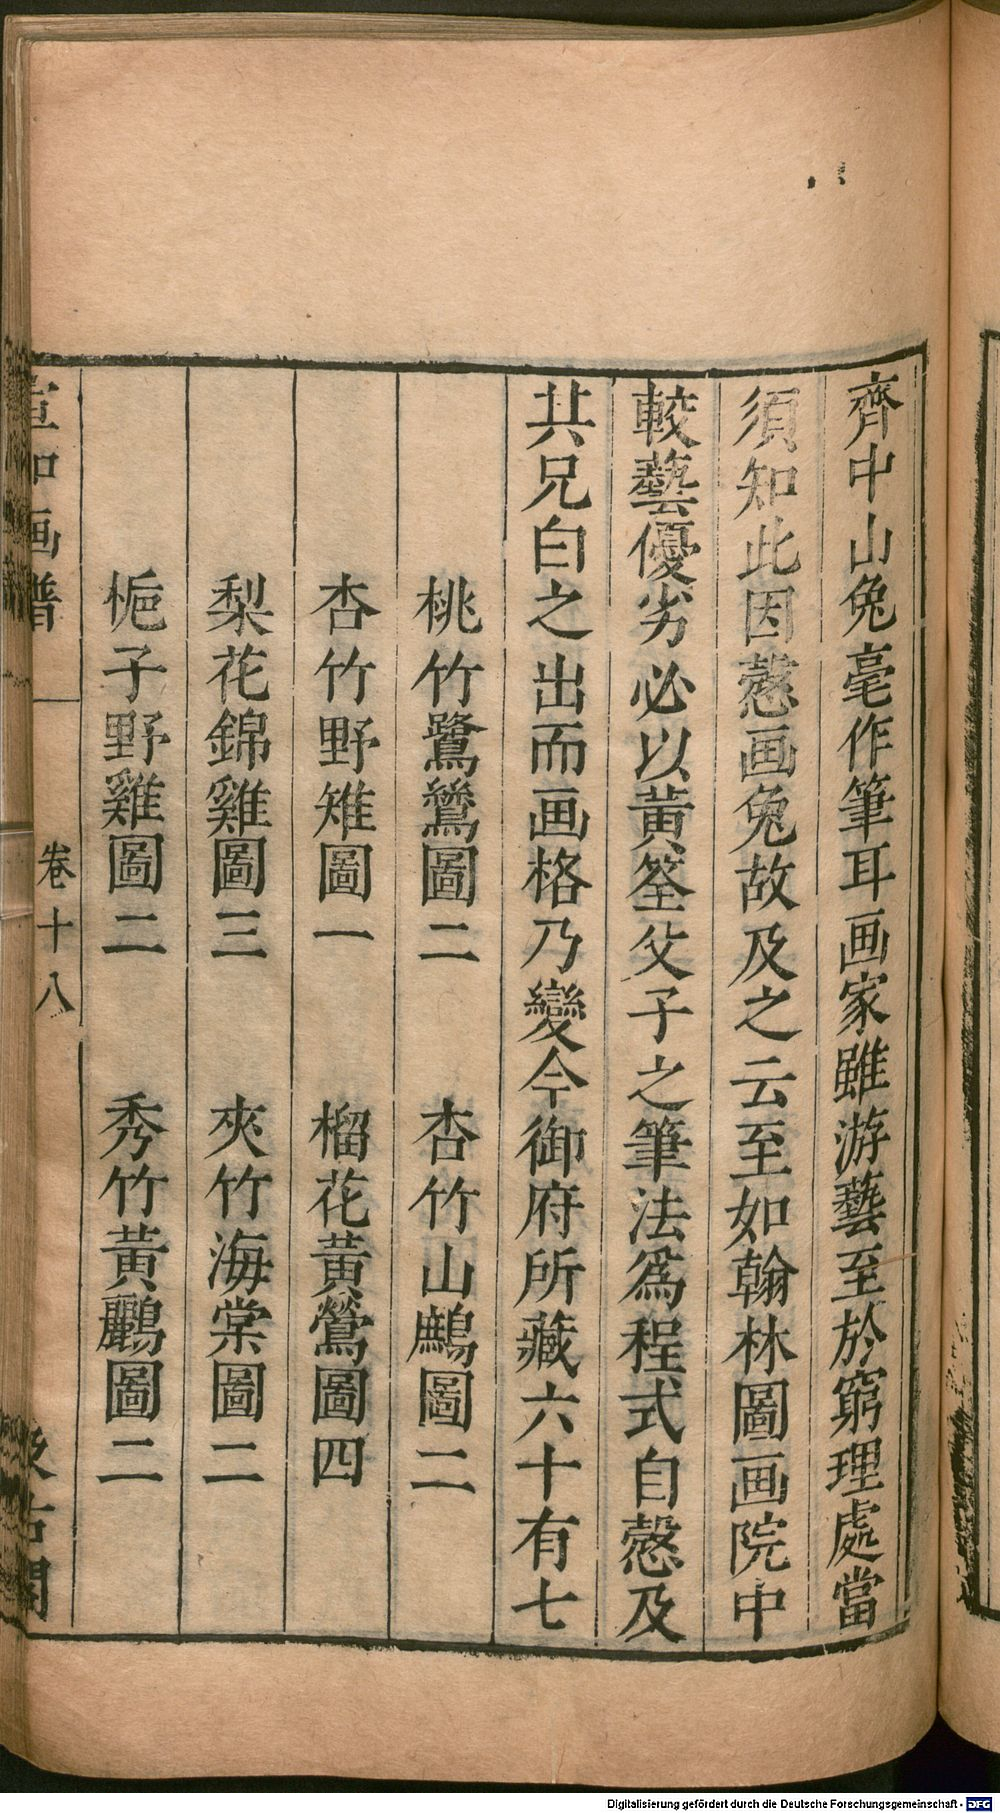 齊中山兔毫作筆耳画家雖游藝至於窮理處當
須知此因慤画兔故及之云至如翰林圖画院中
較藝優劣必以黃筌父子之筆法爲程式自慤及
其兄白之出而画格乃變今御府所藏六十有七
桃竹鷺鷥圖二　杏竹山鷓圖二
杏竹野雉圖一　榴花黃鶯圖四
梨花錦雞圖三　夾竹海棠圖二
梔子野雞圖二　秀竹黃鸝圖二
宣和画譜　卷十八　汲古閣
Digitalisierung gefördert durch die Deutsche Forschungsgemeinschaft - DFG